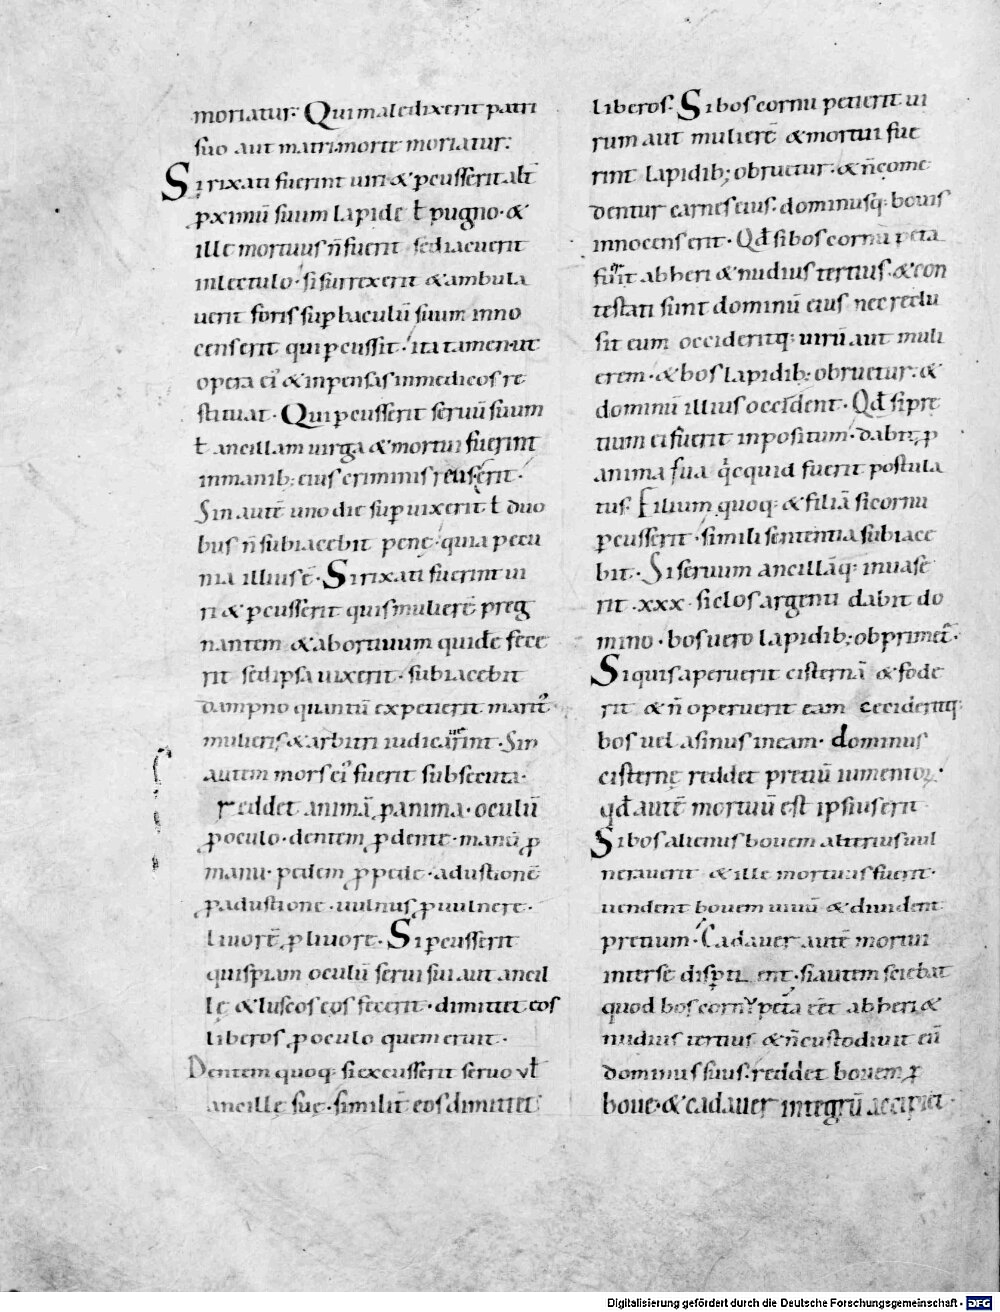 moriatur. Qui maledixerit patri
suo aut matri. morte moriatur.
Si rixati fuerint uiri & p̱cusserit alt̄
p̱ximū suum lapide ł pugno. &
ille mortuus n̄ fuerit sed iacuerit
in lectulo. si surrexerit & ambula
uerit foris sup̱ baculū suum inno
cens erit qui p̱cussit. ita tamen ut
opera ei᾿ & inpensas in medicos re
stituat. Qui p̱cusserit seruū suum
ł ancillam uirga & mortui fuerint
in manib; eius criminis reus erit.
Sin autē uno die sup̱uixerit ł duo
bus n̄ subiacebit penę. quia pecu
nia illius ē. Si rixati fuerint ui
ri & p̱cusserit quis mulierē preg
nantem & abortiuum quidē fece
rit sed ipsa uixerit. subiacebit
dampno quantū expetierit marit᾿
mulieris & arbitri iudicauerint. Sin
autem mors ei᾿ fuerit subsecuta.
reddet animā ꝓ anima. oculū
ꝓ oculo. dentem ꝓ dente. manū ꝓ
manu. pedem ꝓ pede. adustionē
ꝓ adustione. uulnus ꝓ uulnere.
liuorē ꝓ liuore. Si p̱cusserit
quispiam oculū serui sui aut ancil
lę & luscos eos fecerit. dimittet eos
liberos ꝓ oculo quem eruit.
Dentem quoq; si excusserit seruo vł
ancillę suę. similit̄ eos dimittet
liberos. Si bos cornu petierit ui
rum aut mulierē & mortui fue
rint lapidib; obruetur. & n̄ come
dentur carnes eius. dominusq; bouis
innocens erit. Qđ si bos cornu peta
fuerit ab heri & nudius tertius. & con
testati sunt dominū eius nec reclu
sit eum occideritq; uirū aut muli
erem. & bos lapidib; obruetur. &
dominū illius occident. Qđ si pre
tium ei fuerit inpositum. dabit ꝓ
anima sua qͥcquid fuerit postula
tus. Filium quoq; & filiā si cornu
p̱cusserit. simili sententia subiace
bit. Si seruum ancillāq; inuase
rit. xxx. siclos argenti dabit do
mino. bos uero lapidib; obprimet᾿.
Si quis aperuerit cisternā & fode
rit & n̄ operuerit eam cecideritq;
bos uel asinus in eam. dominus
cisternę reddet pretiū iumentoꝝ.
qđ autē mortuū est ipsius erit
Si bos alienus bouem alterius uul
nerauerit & ille mortuus fuerit.
uendent bouem uiuū & diuident
pretium. Cadauer autē mortui
inter se disp̱tient. si autem sciebat
quod bos cornu peta eēt ab heri &
nudius tertius & n̄ custodiuit eū
dominus suus. reddet bouem ꝓ
boue. & cadauer integrū accipiet.
Digitalisierung gefördert durch die Deutsche Forschungsgemeinschaft - DFG